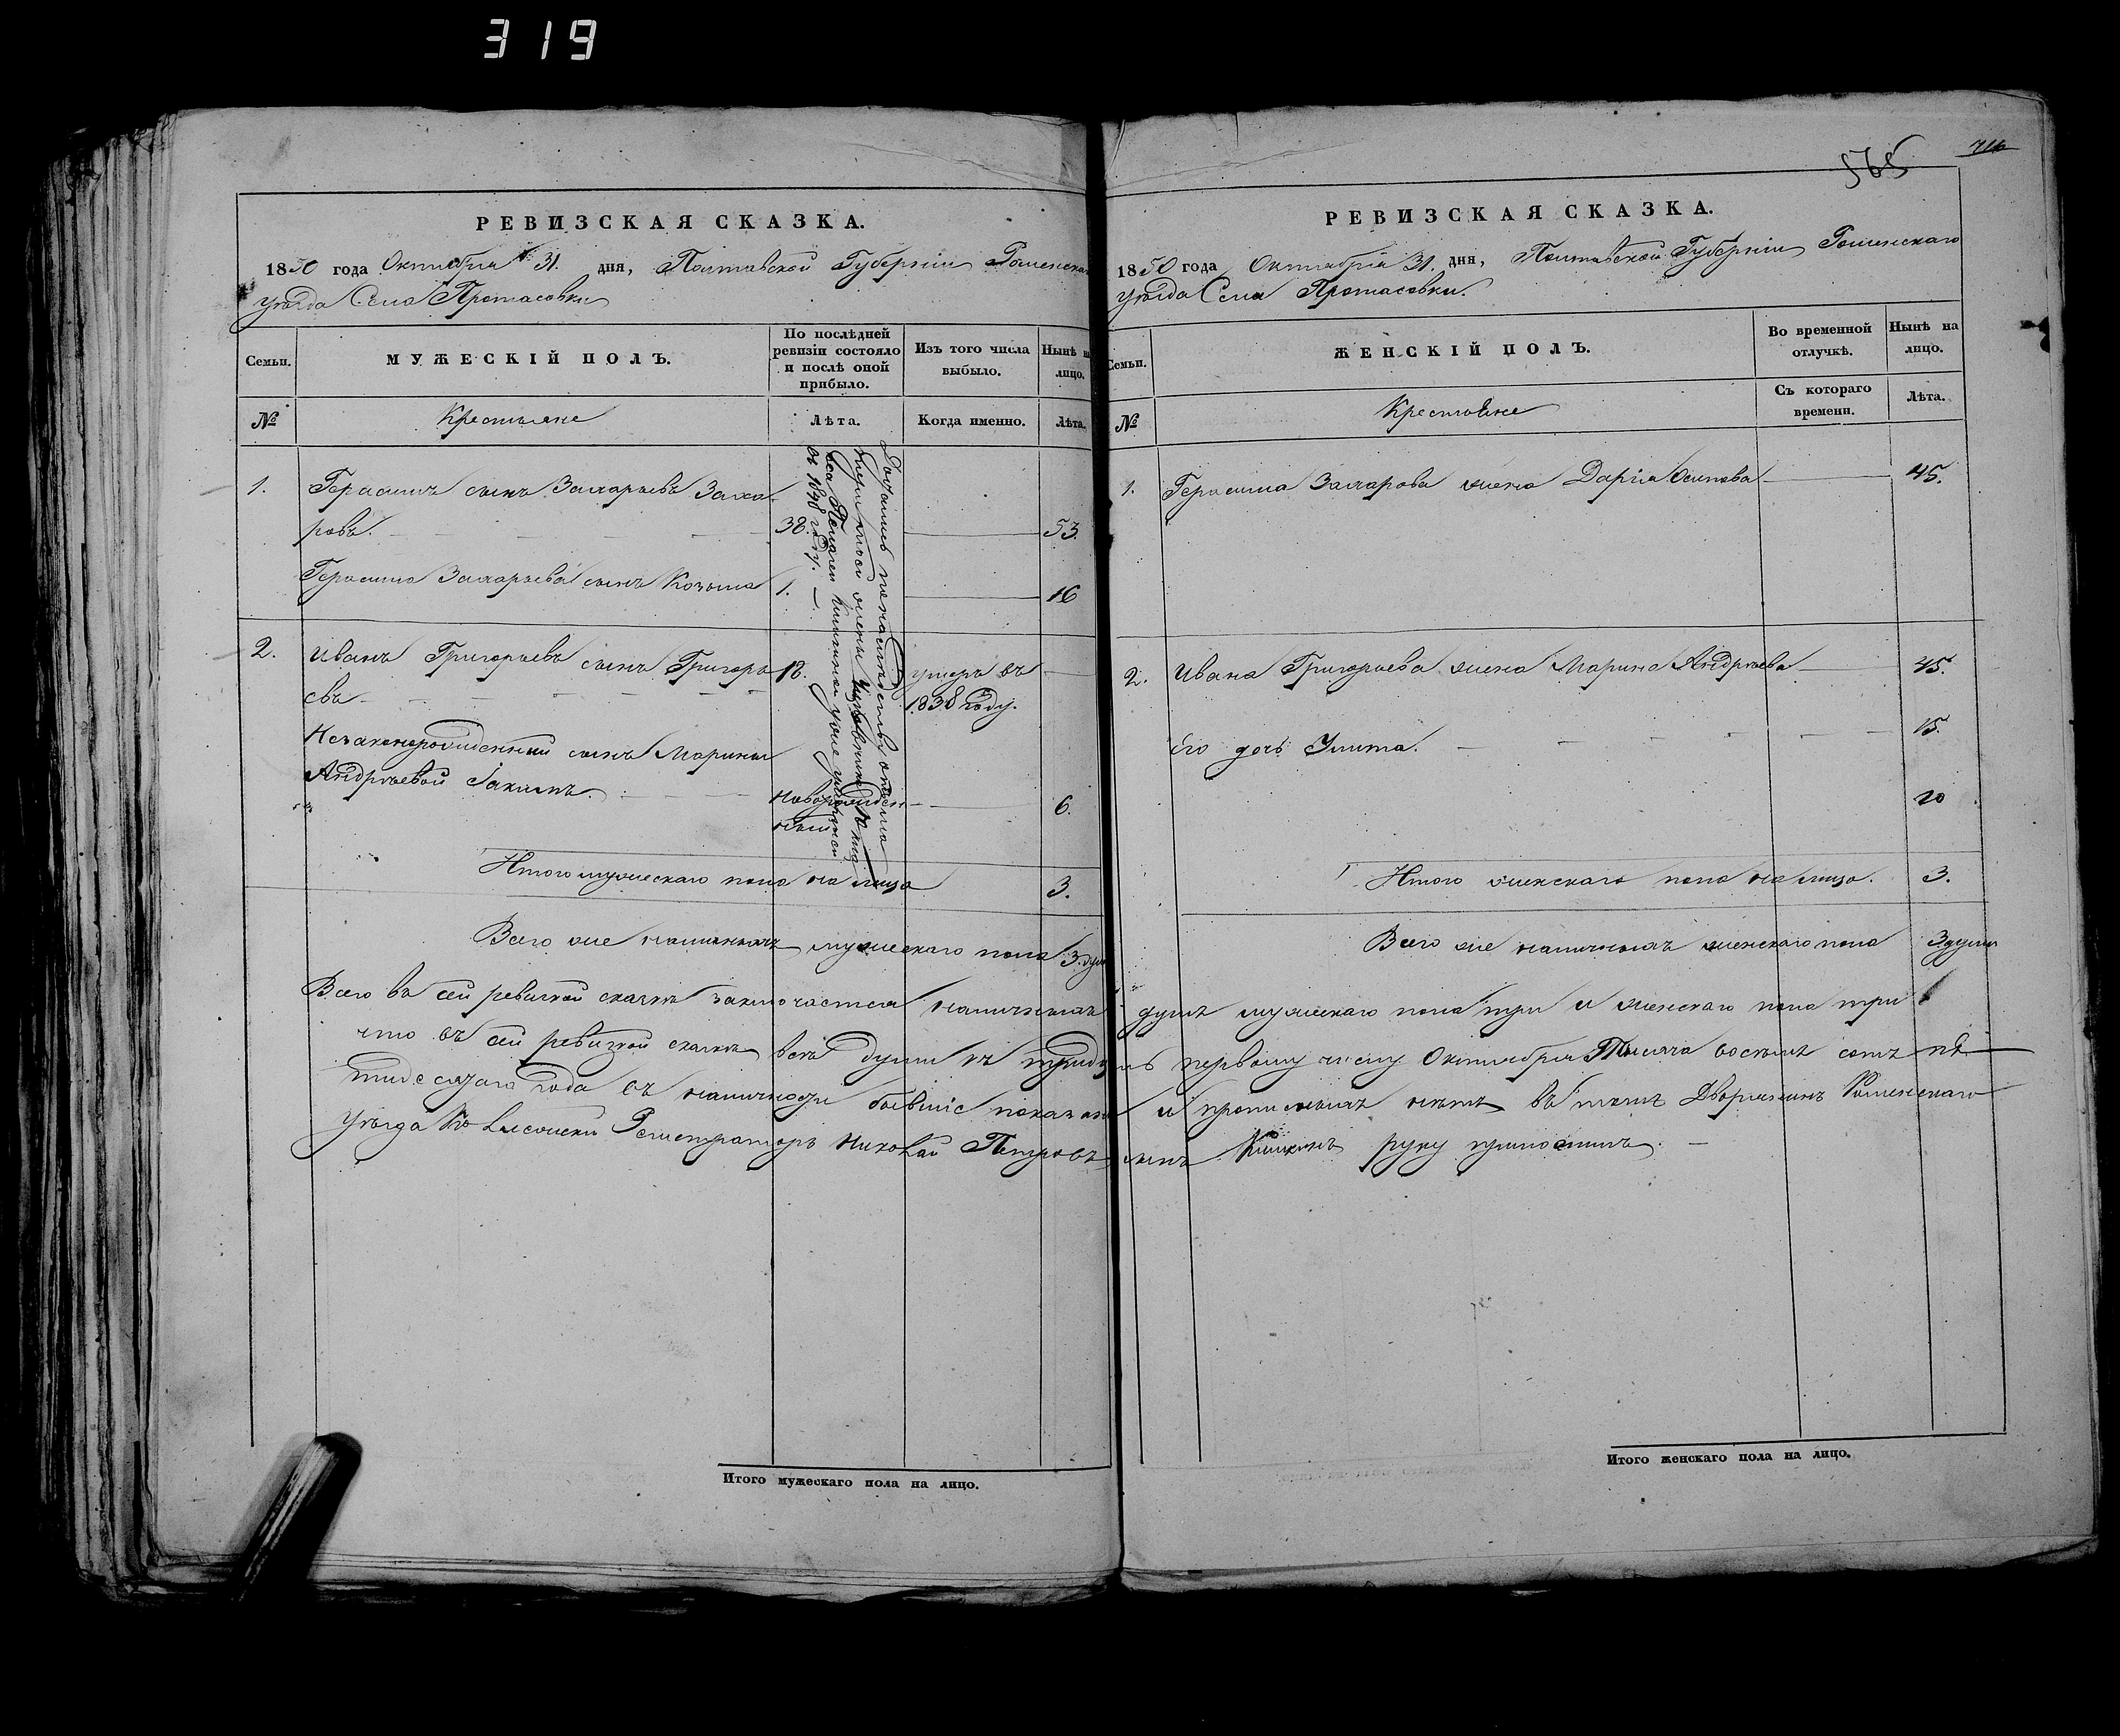 319
565
716
РЕВИЗСКАЯ СКАЗКА.
1850 года Октября 31. дня, Полтавской Губерніи Роменска
уѣзда Села Протасовки
Семьи.
МУЖЕСКІЙ ПОЛЪ.
По послѣдней ревизіи состояло и послѣ оной прибыло.
Изъ того числа выбыло.
Нынѣ на лицо.
№
Крестьяне
Лѣта.
Когда именно.
Лѣта.
1. Герасимъ сынъ Захарьевъ Заха-
ровъ. 38. 53.
Герасима Захарьева сынъ Козьма 1. 16
2. Иванъ Григорьевъ сынъ Григорь 18. умеръ въ
евъ 1838 году.
Незаконорожденный сынъ Марины
Андрѣевой Іакимъ. новорожден- 6.
ный
Достались по наслѣдству отъ
умершей
Пелагеи
въ 1848 году.
Итого мужескаго пола на лицо 3.
Всего же наличныхъ мужескаго пола 3. душ
РЕВИЗСКАЯ СКАЗКА.
1850 года Октября 31. дня, Полтавской Губерніи Роменскаго
уѣзда Села Протасовки.
Семьи.
ЖЕНСКІЙ ПОЛЪ.
Во временной отлучкѣ.
Нынѣ на лицо.
№
Крестьяне
Съ котораго времени.
Лѣта.
1. Герасима Захарова жена Дарія Осипова 45.
2. Ивана Григорьева жена Марина Андрѣева 45.
его дочь Улита. 15.
20
Итого женскаго пола на лицо. 3.
Всего же наличныхъ женскаго пола 3 души
Всего въ сей ревизкой сказкѣ заключается наличныхъ душъ мужескаго пола три и женскаго пола три
что въ сей ревизкой сказкѣ всѣ души къ тридцать первому числу Октября Тысяча восемь сотъ пя-
тидесятаго года въ наличности бывшіе показаны и прописныхъ нѣтъ въ томъ Дворянинъ Роменскаго
уѣзда Регистраторъ Николай Петровъ сынъ руку приложилъ.
Итого мужескаго пола на лицо.
Итого женскаго пола на лицо.